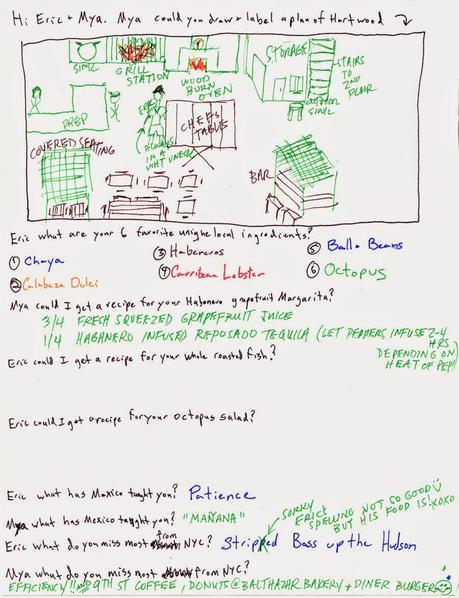 Hi Eric + Mya. Mya could you draw + label a plan of Hartwood
SINK
GRILL STATION
WOOD BURN OVEN
STORAGE
STAIRS TO 2ND FLOOR
OUTDOOR SINK
PREP
ERIC
ALWAYS IN A WHT UNEEK
CHEFS TABLE
COVERED SEATING
BAR
Eric what are your 6 favorite unique local ingredients?
① Chaya
③ Habeneros
⑤ Ballo Beans
② Calabaza Dulci
④ Carribean Lobster
⑥ Octopus
Mya could I get a recipe for your Habonero grapefruit Margarita?
3/4 FRESH SQUEEZED GRAPEFRUIT JUICE
1/4 HABANERO INFUSED REPOSADO TEQUILA (LET PEPPERS INFUSE 2-4 HRS DEPENDING ON HEAT OF PEP)
Eric could I get a recipe for your whole roasted fish?
Eric could I get a recipe for your octopus salad?
Eric what has Mexico tught you? Patience
Mya what has Mexico tught you? "MAÑANA"
SORRY ERICK SPELLING NOT SO GOOD BUT HIS FOOD IS! XOXO
Eric what do you miss most from NYC? Stripped Bass up the Hudson
Mya what do you miss most from NYC?
EFFICIENCY!! 9TH ST COFFEE, DONUTS @ BALTHAZAR BAKERY + DINER BURGERS